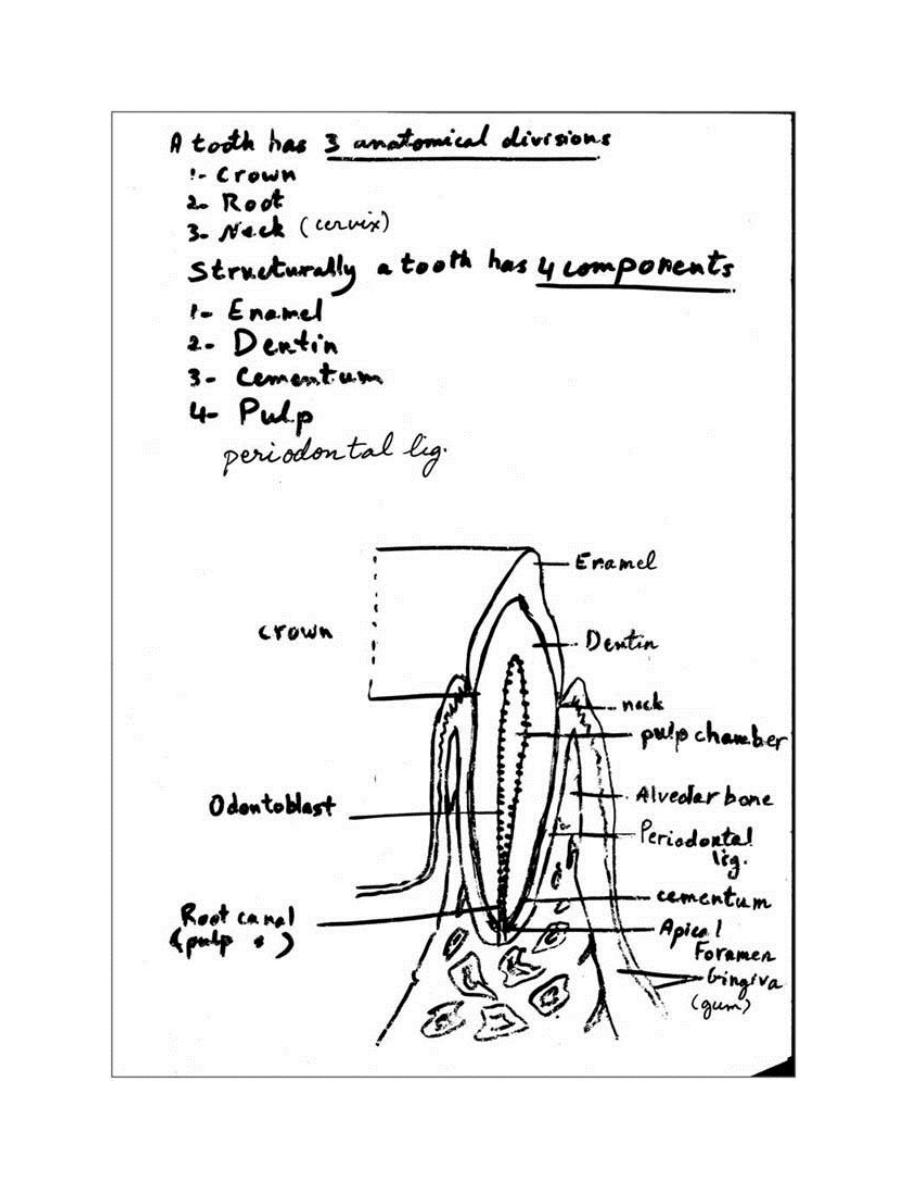 A tooth has 3 anatomical divisions
1- Crown
2- Root
3- Neck (cervix)
Structurally a tooth has 4 components
1- Enamel
2- Dentin
3- Cementum
4- Pulp
periodontal lig.
Enamel
crown
Dentin
neck
pulp chamber
Alveolar bone
Odontoblast
Periodontal
lig.
cementum
Root canal
(pulp )
Apical
Foramen
Gingiva
(gum)